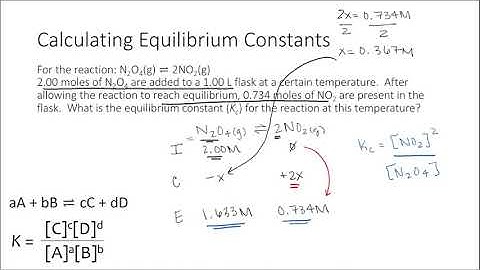 Calculating Equilibrium Constants
2x = 0.734M
2 2
x = 0.367M
For the reaction: N₂O₄(g) ⇌ 2NO₂(g)
2.00 moles of N₂O₂ are added to a 1.00 L flask at a certain temperature. After
allowing the reaction to reach equilibrium, 0.734 moles of NO₂ are present in the
flask. What is the equilibrium constant (Kc) for the reaction at this temperature?
N₂O₄(g) ⇌ 2NO₂(g)
I 2.00M 0
C -x +2x
E 1.633M 0.734M
Kc = [NO₂]²
[N₂O₄]
aA + bB ⇌ cC + dD
K = [C]ᶜ[D]ᵈ
[A]ᵃ[B]ᵇ